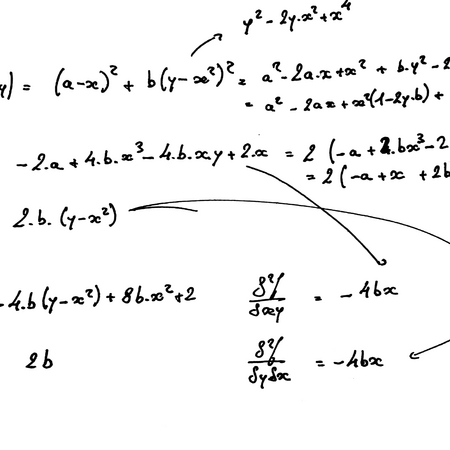 y² - 2y·x² + x⁴
y) = (a-x)² + b(y-x²)² = a² - 2a·x + x² + b·y² - 2
= a² - 2ax + x²(1-2y·b) +
-2·a + 4·b·x³ - 4·b·x·y + 2·x = 2 (-a + 2·bx³ - 2
= 2 (-a + x + 2b
2·b·(y-x²)
-4·b(y-x²) + 8b·x² + 2 δ²f/δxy = -4bx
2b δ²f/δyδx = -4bx